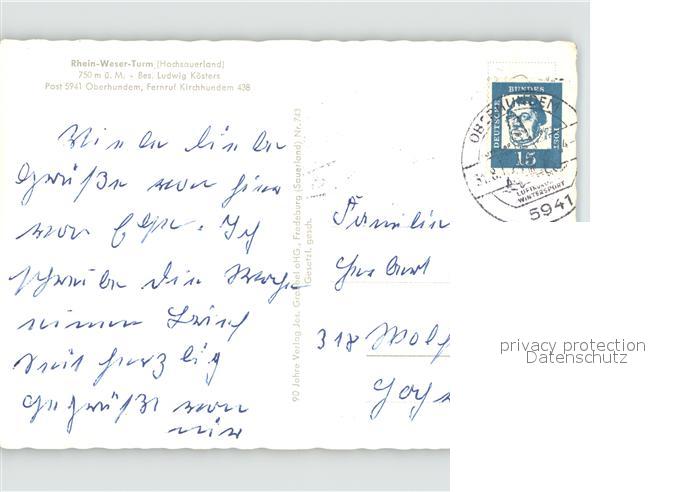 Rhein-Weser-Turm (Hochsauerland)
750 m ü. M. - Bes. Ludwig Kösters
Post 5941 Oberhundem, Fernruf Kirchhundem 438
Viele liebe
Grüße von hier
von Ich
schreibe die Woche
einen Brief
Seit herzlig
gegrüßt von
mir
90 Jahre Verlag Jos. Grobbel oHG., Fredeburg (Sauerland) Nr. 743
Gesetzl. gesch.
Familie
318 Wolf
DEUTSCHE BUNDESPOST
15
OBERHUNDEM
LUFTKUR
WINTERSPORT
5941
privacy protection
Datenschutz